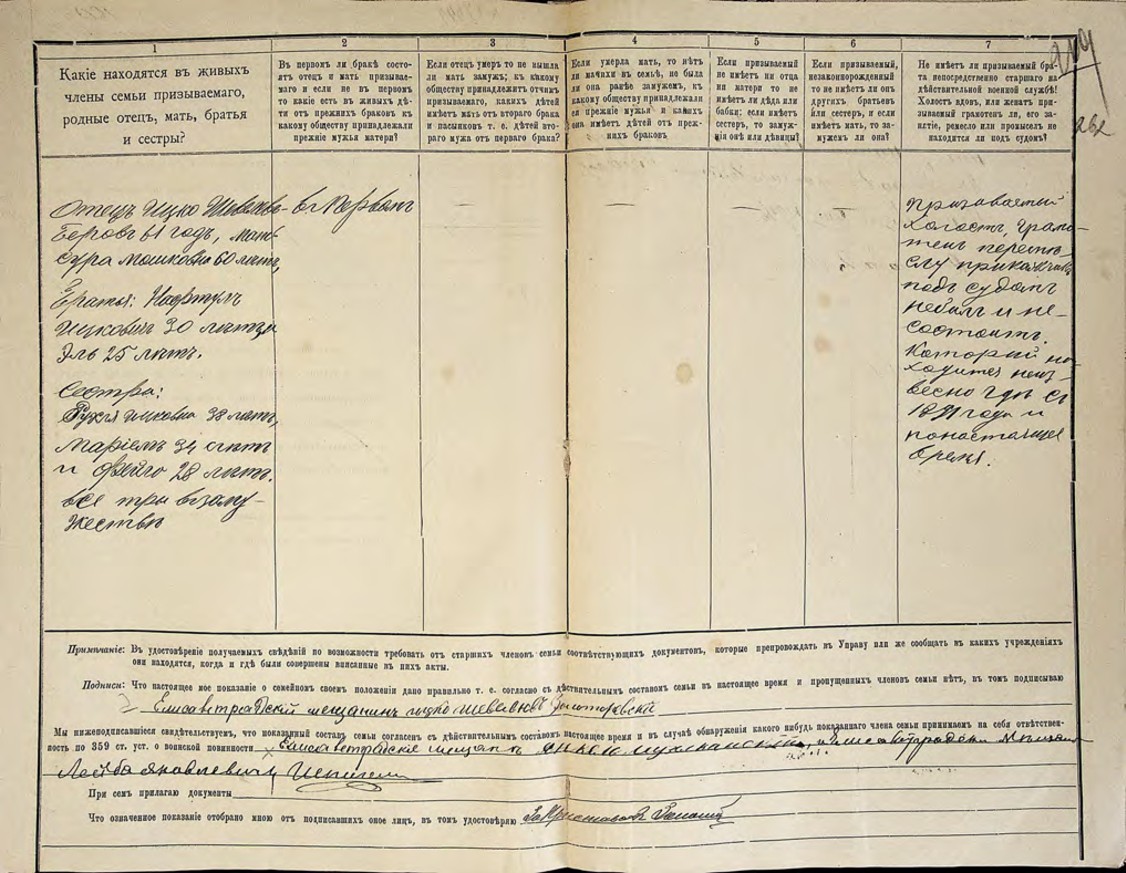 1
2
3
4
5
6
7
214
262
Какіе находятся въ живыхъ
члены семьи призываемаго,
родные отецъ, мать, братья
и сестры?
Въ первомъ ли бракѣ состо-
ятъ отецъ и мать призывае-
маго и если не въ первомъ
то какіе есть въ живыхъ дѣ-
ти отъ прежнихъ браковъ къ
какому обществу принадлежали
прежніе мужья матери?
Если отецъ умеръ то не вышла
ли мать замужъ; къ какому
обществу принадлежитъ отчимъ
призываемаго, какихъ дѣтей
имѣетъ мать отъ втораго брака
и пасынковъ т. е. дѣтей вто-
раго мужа отъ перваго брака?
Если умерла мать, то нѣтъ
ли мачихи въ семьѣ, не была
ли она ранѣе замужемъ, къ
какому обществу принадлежали
ея прежніе мужья и какихъ
она имѣетъ дѣтей отъ преж-
нихъ браковъ
Если призываемый
не имѣетъ ни отца
ни матери то не
имѣетъ ли дѣда или
бабки; если имѣетъ
сестеръ, то замуж-
нія онѣ или дѣвицы?
Если призываемый,
незаконорожденный
то не имѣетъ ли онъ
другихъ братьевъ
или сестеръ, и если
имѣетъ мать, то за-
мужемъ ли она?
Не имѣетъ ли призываемый бра-
та непосредственно старшаго на
дѣйствительной военной службѣ!
Холостъ вдовъ, или женатъ при-
зываемый грамотенъ ли, его за-
нятіе, ремесло или промыселъ не
находится ли подъ судомъ?
Отецъ Ицко
61 годъ, мать
Сура Мошковна 60 лѣтъ,
Братья: Нафтулъ
Ицковичъ 30 лѣтъ и
Эль 25 лѣтъ.
Сестра:
Рухля Ицковна 38 лѣтъ,
Маріемъ 34 лѣтъ
и Фейго 28 лѣтъ.
всѣ три въ заму-
жествѣ
въ первомъ
—
—
—
—
призываемый
холостъ, грамо-
тенъ
слу приказчикъ
подъ судомъ
небылъ и не-
состоитъ.
Который на-
ходится неиз-
весно гдѣ съ
1891 года и
понастоящея
время.
Примѣчаніе: Въ удостовѣреніе получаемыхъ свѣдѣній по возможности требовать отъ старшихъ членовъ семьи соотвѣтствующихъ документовъ, которые препровождать въ Управу или же сообщать въ какихъ учрежденіяхъ
они находятся, когда и гдѣ были совершены вписанные въ нихъ акты.
Подписи: Что настоящее мое показаніе о семейномъ своемъ положеніи дано правильно т. е. согласно съ дѣствительнымъ составомъ семьи въ настоящее время и пропущенныхъ членовъ семьи нѣтъ, въ томъ подписываю
Елисаветградскій мещанинъ Ицко
Мы нижеподписавшіеся свидѣтельствуемъ, что показанный составъ семьи согласенъ съ дѣйствительнымъ составомъ настоящее время и въ случаѣ обнаруженія какого нибудь показаннаго члена семьи принимаемъ на себя отвѣтствен-
ность по 359 ст. уст. о воинской повинности Елисаветградскіе
Лейба Яковлевичъ
При семъ прилагаю документы
Что означенное показаніе отобрано мною отъ подписавшихъ оное лицъ, въ томъ удостовѣряю